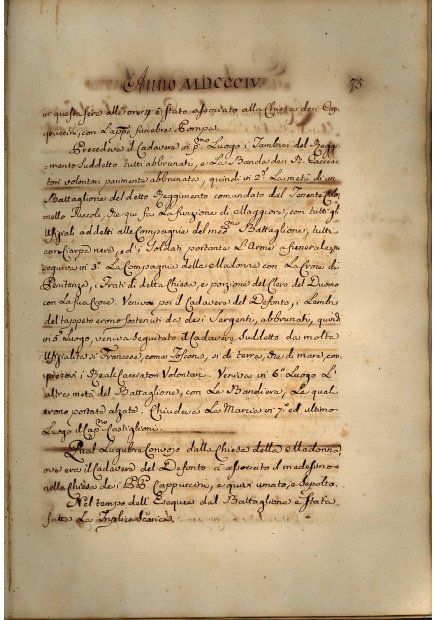 Anno MDCCCIV. 75
in questa sera alle ore 4 è stato associato alla Chiesa dei Cap-
puccini, con l'appo funebre Pompa.
Precedeva il Cadavere in pmo Luogo i Tamburi del Reggi-
mento Suddetto tutti abbrunati, e la Banda dei RR. Caccia-
tori volontari parimente abbrunata, quindi in 2o. La metà di un
Battaglione del detto Reggimento comandato dal Tenente Colon-
nello Piccoli, che qui fa la funzione di Maggiore, con tutti gli
Uffiziali addetti alle Compagnie del medmo Battaglione, tutti
con Ciarpa nera, ed i Soldati portante l'Arme a funerale,
seguiva in 3o La Compagnia della Madonna con la Croce di
Penitenza, i Frati di detta Chiesa, e porzione del Clero del Duomo
con la sua Croce. Veniva poi il Cadavere del Defonto, i Lembi
del tappeto erono sostenuti da dei Sergenti, abbrunati, quindi
in 5o Luogo, veniva seguitato il Cadavere Suddetto da molta
Uffizialità sì Francese, come Toscana, sì di terra, che di mare, com-
presovi i Reali Cacciatori Volontari. Veniva in 6o Luogo L'
altra metà del Battaglione, con le Bandiera, le quali
erono portate alzate. Chiudeva La Marcia in 7o ed ultimo
Luogo il Capno Castiglioni.
Qual Lugubre Convojo dalla Chiesa della Madonna
ove era il Cadavere del Defonto à associato il medesimo
nella Chiesa dei PP Cappuccini, e quivi umato, e Sepolto.
Nel tempo dell'Esequie dal Battaglione è stata
fatta La Triplice Scarica.